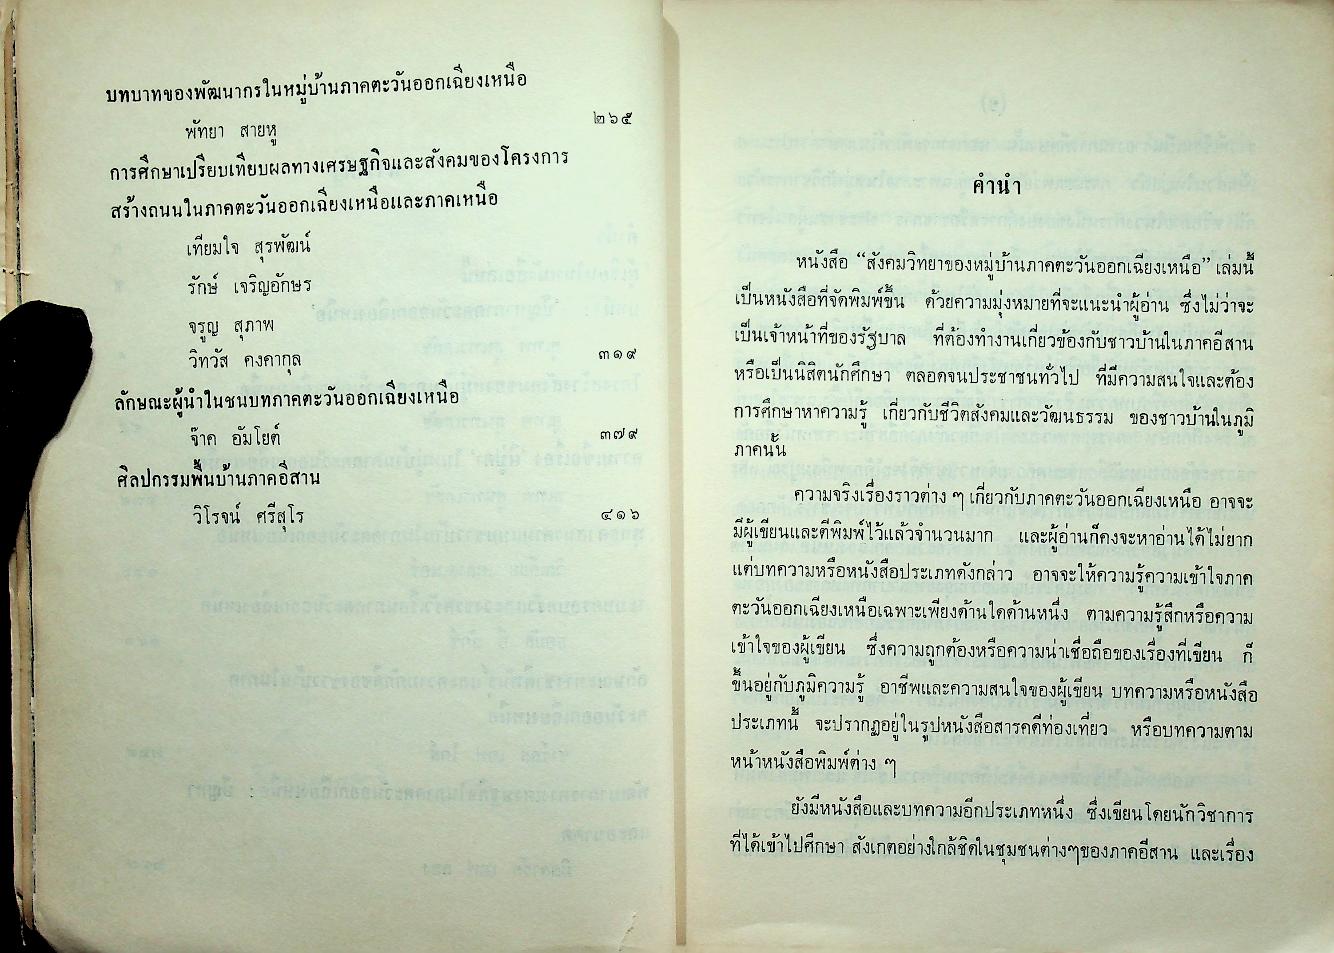 บทบาทของพัฒนากรในหมู่บ้านภาคตะวันออกเฉียงเหนือ
พัทยา สายหู ๒๖๕
การศึกษาเปรียบเทียบผลทางเศรษฐกิจและสังคมของโครงการ
สร้างถนนในภาคตะวันออกเฉียงเหนือและภาคเหนือ
เทียมใจ สุรพัฒน์
รักษ์ เจริญอักษร
จรูญ สุภาพ
วิทวัส คงคากุล ๓๑๙
ลักษณะผู้นำในชนบทภาคตะวันออกเฉียงเหนือ
จ๊าค อัมโยต์ ๓๗๙
ศิลปกรรมพื้นบ้านภาคอีสาน
วิโรจน์ ศรีสุโร ๔๑๖
คำนำ
หนังสือ “สังคมวิทยาของหมู่บ้านภาคตะวันออกเฉียงเหนือ” เล่มนี้
เป็นหนังสือที่จัดพิมพ์ขึ้น ด้วยความมุ่งหมายที่จะแนะนำผู้อ่าน ซึ่งไม่ว่าจะ
เป็นเจ้าหน้าที่ของรัฐบาล ที่ต้องทำงานเกี่ยวข้องกับชาวบ้านในภาคอีสาน
หรือเป็นนิสิตนักศึกษา ตลอดจนประชาชนทั่วไป ที่มีความสนใจและต้อง
การศึกษาหาความรู้ เกี่ยวกับชีวิตสังคมและวัฒนธรรม ของชาวบ้านในภูมิ
ภาคนั้น
ความจริงเรื่องราวต่าง ๆ เกี่ยวกับภาคตะวันออกเฉียงเหนือ อาจจะ
มีผู้เขียนและตีพิมพ์ไว้แล้วจำนวนมาก และผู้อ่านก็คงจะหาอ่านได้ไม่ยาก
แต่บทความหรือหนังสือประเภทดังกล่าว อาจจะให้ความรู้ความเข้าใจภาค
ตะวันออกเฉียงเหนือเฉพาะเพียงด้านใดด้านหนึ่ง ตามความรู้สึกหรือความ
เข้าใจของผู้เขียน ซึ่งความถูกต้องหรือความน่าเชื่อถือของเรื่องที่เขียน ก็
ขึ้นอยู่กับภูมิความรู้ อาชีพและความสนใจของผู้เขียน บทความหรือหนังสือ
ประเภทนี้ จะปรากฏอยู่ในรูปหนังสือสารคดีท่องเที่ยว หรือบทความตาม
หน้าหนังสือพิมพ์ต่าง ๆ
ยังมีหนังสือและบทความอีกประเภทหนึ่ง ซึ่งเขียนโดยนักวิชาการ
ที่ได้เข้าไปศึกษา สังเกตอย่างใกล้ชิดในชุมชนต่างๆของภาคอีสาน และเรื่อง